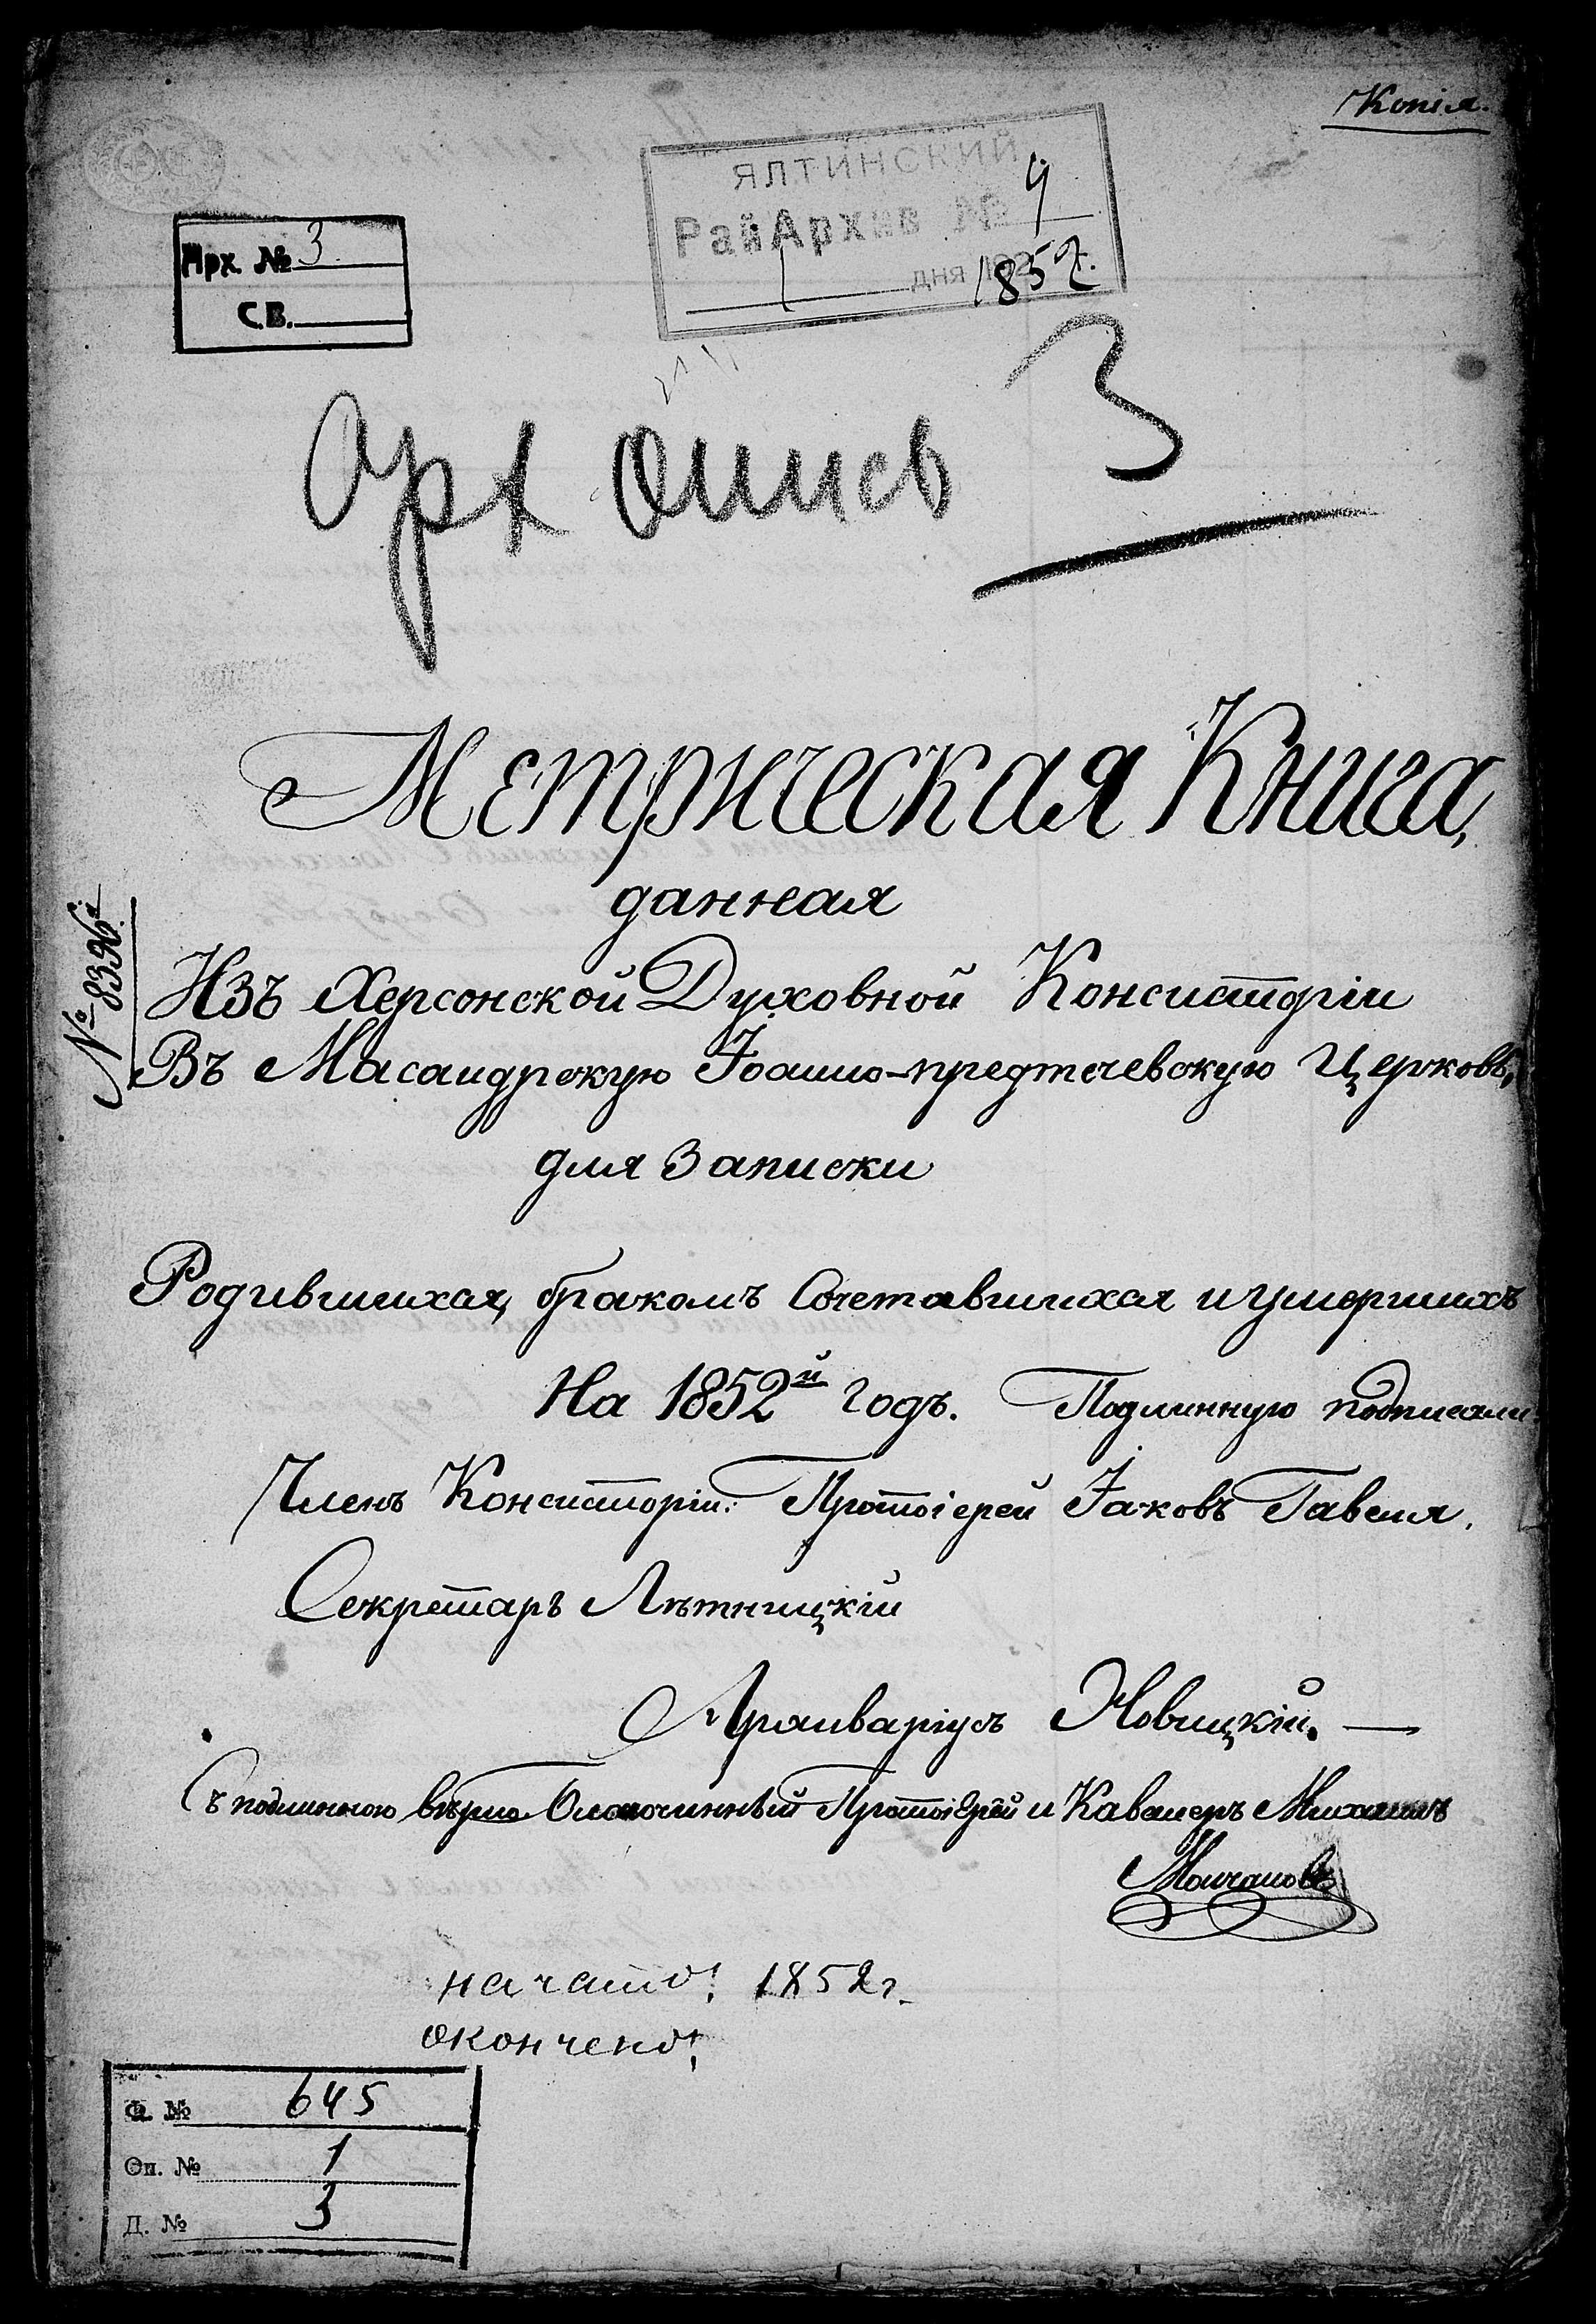 Копія.
ЯЛТИНСКИЙ
РайАрхив № 4
1 дня 1852.
Арх. № 3.
С.В.
Арх опись 3
Метрическая Книга,
данная
№ 8396й
Изъ Херсонской Духовной Консисторіи
Въ Масандрскую Іоанно-предтечевскую Церковь,
для Записки
Родившихся, бракомъ Сочетавшихся и умершихъ
На 1852й годъ. Подлинную подписали
Членъ Консисторіи: Протоіерей Іаковъ Гавеля.
Секретарь Лѣтницкій
Архиваріусъ Новицкій. —
Съ подлинною вѣрно Благочинный Протоіерей и Кавалеръ Михаилъ
начато: 1852г.
окончено:
Ф. № 645
Оп. № 1
Д. № 3